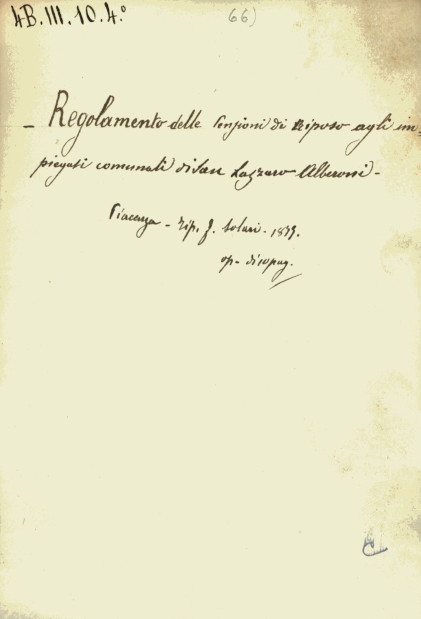 4B.III.10.4.°
66)
- Regolamento delle Pensioni di Riposo agli im-
piegati comunali di San Lazzaro Alberoni -
Piacenza - Tip. F. Solari - 1879.
op - di 10 pag.